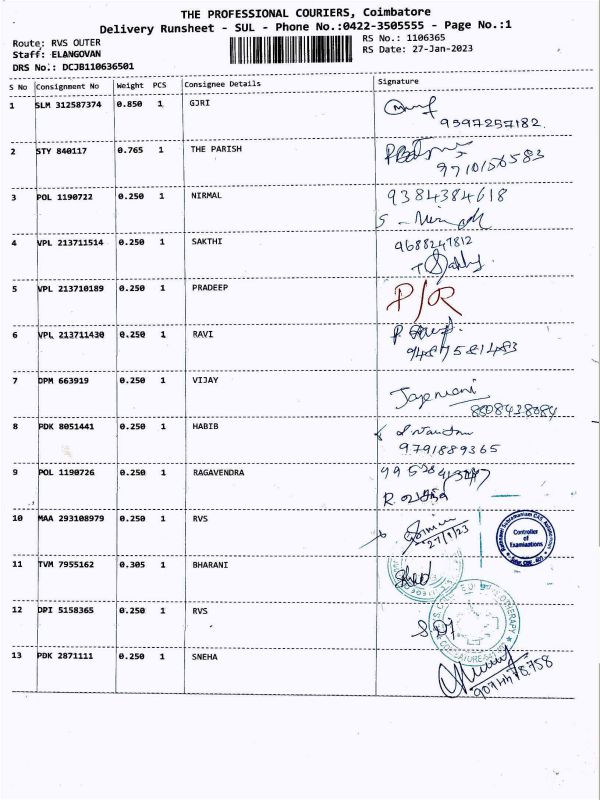 THE PROFESSIONAL COURIERS, Coimbatore
Delivery Runsheet - SUL - Phone No.:0422-3505555 - Page No.:1
Route: RVS OUTER RS No.: 1106365
Staff: ELANGOVAN RS Date: 27-Jan-2023
DRS No.: DCJB110636501
S No Consignment No Weight PCS Consignee Details Signature
1 SLM 312587374 0.850 1 GJRI
9597257182
2 STY 840117 0.765 1 THE PARISH
9710156583
3 POL 1190722 0.250 1 NIRMAL 9384384618
4 VPL 213711514 0.250 1 SAKTHI 9688247812
5 VPL 213710189 0.250 1 PRADEEP P/R
6 VPL 213711430 0.250 1 RAVI
9487581483
7 DPM 663919 0.250 1 VIJAY
8 PDK 8051441 0.250 1 HABIB
9791889365
9 POL 1190726 0.250 1 RAGAVENDRA
10 MAA 293108979 0.250 1 RVS
27/1/23
Controller
of
Examinations
11 TVM 7955162 0.305 1 BHARANI
12 DPI 5158365 0.250 1 RVS
13 PDK 2871111 0.250 1 SNEHA